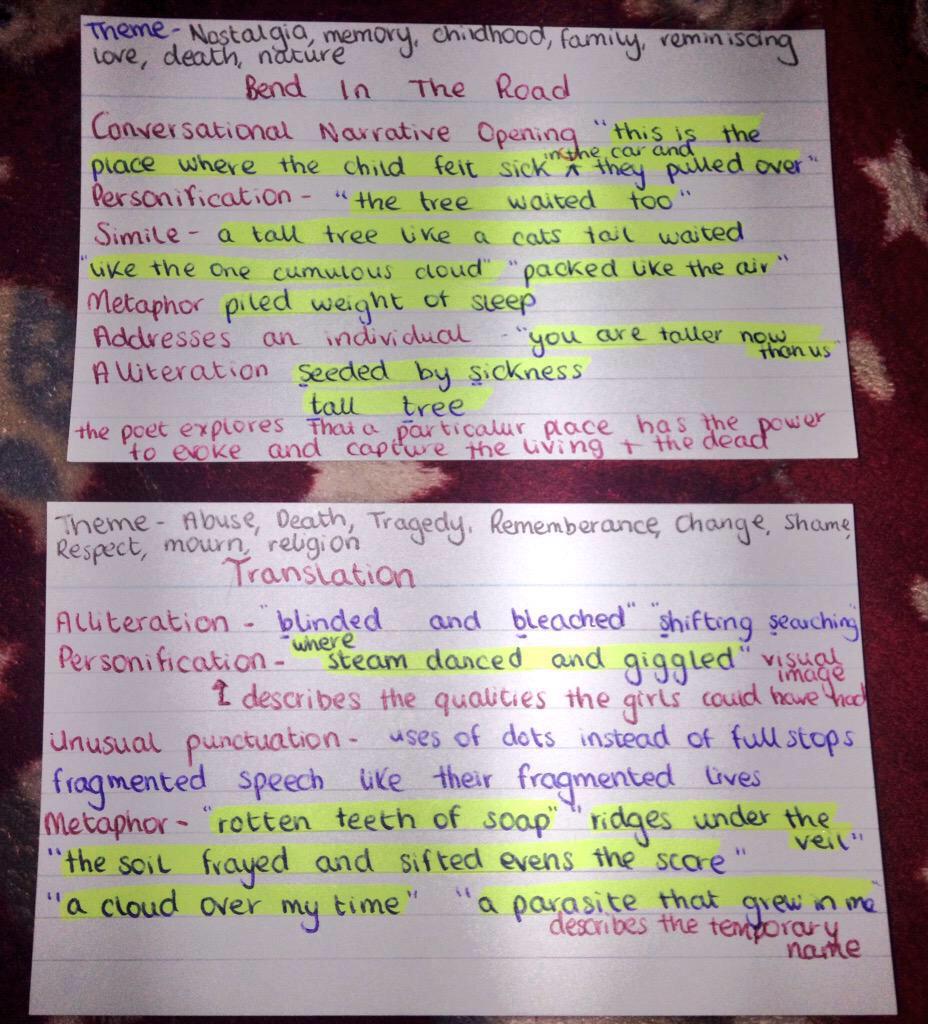 Theme - Nostalgia, memory, childhood, family, reminiscing
love, death, nature
Bend In The Road
Conversational Narrative Opening "this is the
place where the child felt sick in the car and they pulled over"
Personification - "the tree waited too"
Simile - a tall tree like a cats tail waited
"like the one cumulous cloud" "packed like the air"
Metaphor piled weight of sleep
Addresses an individual - "you are taller now
than us"
Alliteration seeded by sickness
tall tree
the poet explores that a particalur place has the power
to evoke and capture the living + the dead
Theme - Abuse, Death, Tragedy, Rememberance, Change, Shame,
Respect, mourn, religion
Translation
Alliteration - "blinded and bleached" "shifting searching"
Personification - where "steam danced and giggled" visual
image
↑ describes the qualities the girls could have had
Unusual punctuation - uses of dots instead of full stops
fragmented speech like their fragmented lives
Metaphor - "rotten teeth of soap" "ridges under the
veil"
"the soil frayed and sifted evens the score"
"a cloud over my time" "a parasite that grew in me"
describes the temporary
name